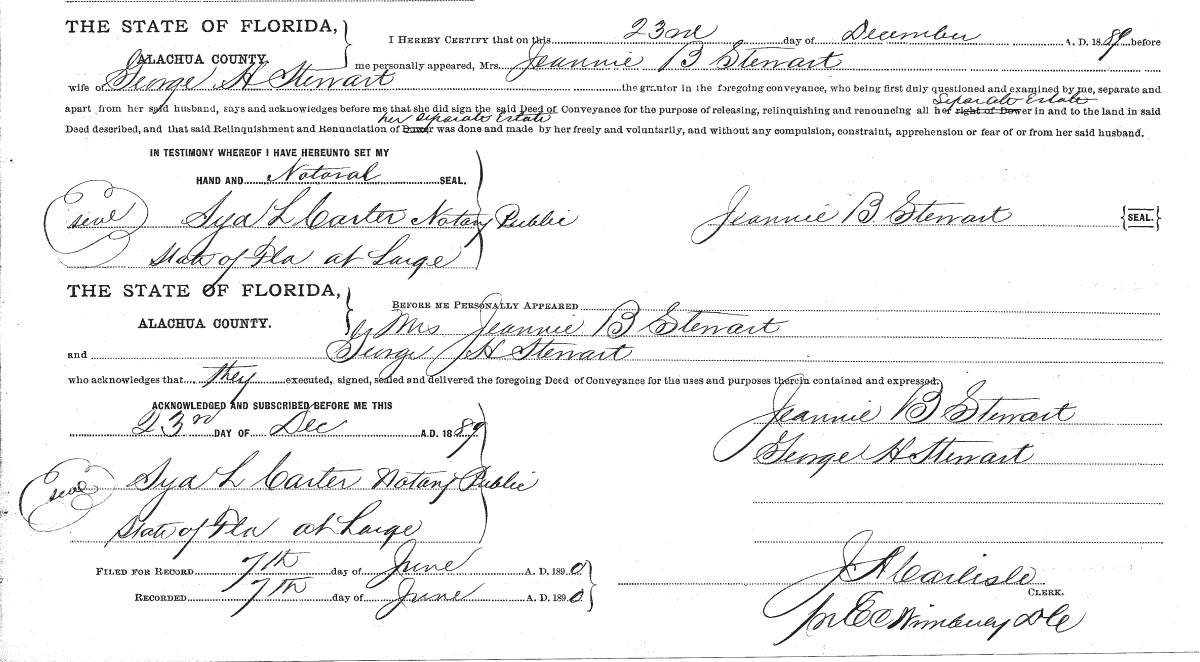 THE STATE OF FLORIDA,
ALACHUA COUNTY.
I HEREBY CERTIFY that on this 23rd day of December A. D. 1889 before
me personally appeared, Mrs. Jeannie B Stewart
wife of George H Stewart the grantor in the foregoing conveyance, who being first duly questioned and examined by me, separate and
Separate Estate
apart from her said husband, says and acknowledges before me that she did sign the said Deed of Conveyance for the purpose of releasing, relinquishing and renouncing all her right of Dower in and to the land in said
her Separate Estate
Deed described, and that said Relinquishment and Renunciation of Dower was done and made by her freely and voluntarily, and without any compulsion, constraint, apprehension or fear of or from her said husband.
IN TESTIMONY WHEREOF I HAVE HEREUNTO SET MY
HAND AND Notoral SEAL.
seal Syd L Carter Notary Public
Jeannie B. Stewart {SEAL.}
State of Fla at Large
THE STATE OF FLORIDA,
ALACHUA COUNTY.
BEFORE ME PERSONALLY APPEARED
Mrs Jeannie B Stewart
and George H Stewart
who acknowledges that they executed, signed, sealed and delivered the foregoing Deed of Conveyance for the uses and purposes therein contained and expressed.
ACKNOWLEDGED AND SUBSCRIBED BEFORE ME THIS
23rd DAY OF Dec A.D. 1889
Jeannie B Stewart
George H Stewart
seal Syd L Carter Notary Public
State of Fla at Large
FILED FOR RECORD 7th day of June A. D. 1890
RECORDED 7th day of June A. D. 1890
J A Carlisle
CLERK.
DC